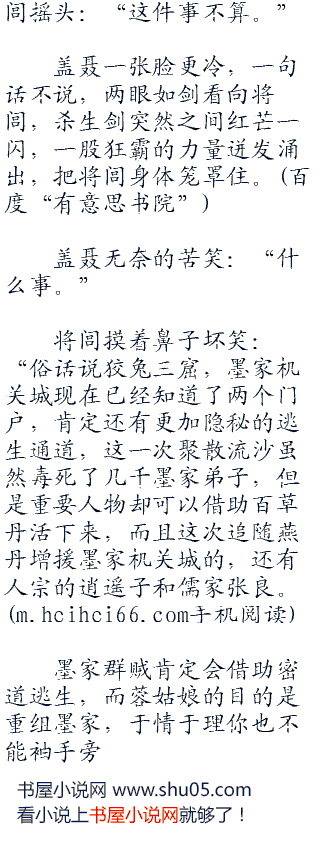 闾摇头：“这件事不算。”
盖聂一张脸更冷，一句
话不说，两眼如剑看向将
闾，杀生剑突然之间红芒一
闪，一股狂霸的力量迸发涌
出，把将闾身体笼罩住。(百
度“有意思书院”)
盖聂无奈的苦笑：“什
么事。”
将闾摸着鼻子坏笑：
“俗话说狡兔三窟，墨家机
关城现在已经知道了两个门
户，肯定还有更加隐秘的逃
生通道，这一次聚散流沙虽
然毒死了几千墨家弟子，但
是重要人物却可以借助百草
丹活下来，而且这次追随燕
丹增援墨家机关城的，还有
人宗的逍遥子和儒家张良。
(m.hcihci66.com手机阅读)
墨家群贼肯定会借助密
道逃生，而蓉姑娘的目的是
重组墨家，于情于理你也不
能袖手旁
书屋小说网 www.shu05.com
看小说上书屋小说网就够了！